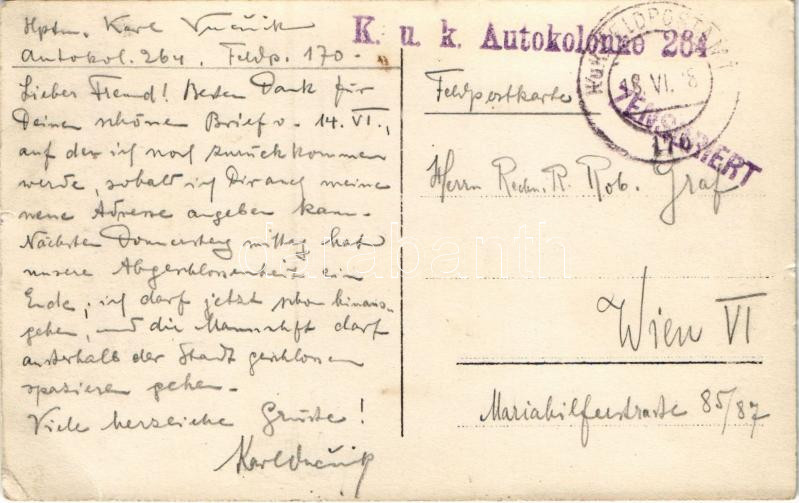 Hptm. Karl Vučnik
Autokol. 264. Feldp. 170.
Lieber Freund! Besten Dank für
Deinen schönen Brief v. 14. VI.,
auf den ich noch zurückkommen
werde, sobald ich Dir auch meine
neue Adresse angeben kann.
Nächsten Donnerstag mittag hat
unsere Abgeschlossenheit ein
Ende; ich darf jetzt schon hinaus-
gehen, und die Mannschft darf
ausserhalb der Stadt geschlossen
spazieren gehen.
Viele herzliche Grüsse!
Karl Vučnik
K. u. k. Autokolonne 264
K.u.K. FELDPOSTAMT
18. VI. 18
170
ZENSURIERT
Feldpostkarte
Herrn Rechn. R. Rob. Graf
Wien VI
Mariahilferstrasse 85/87
darabanth